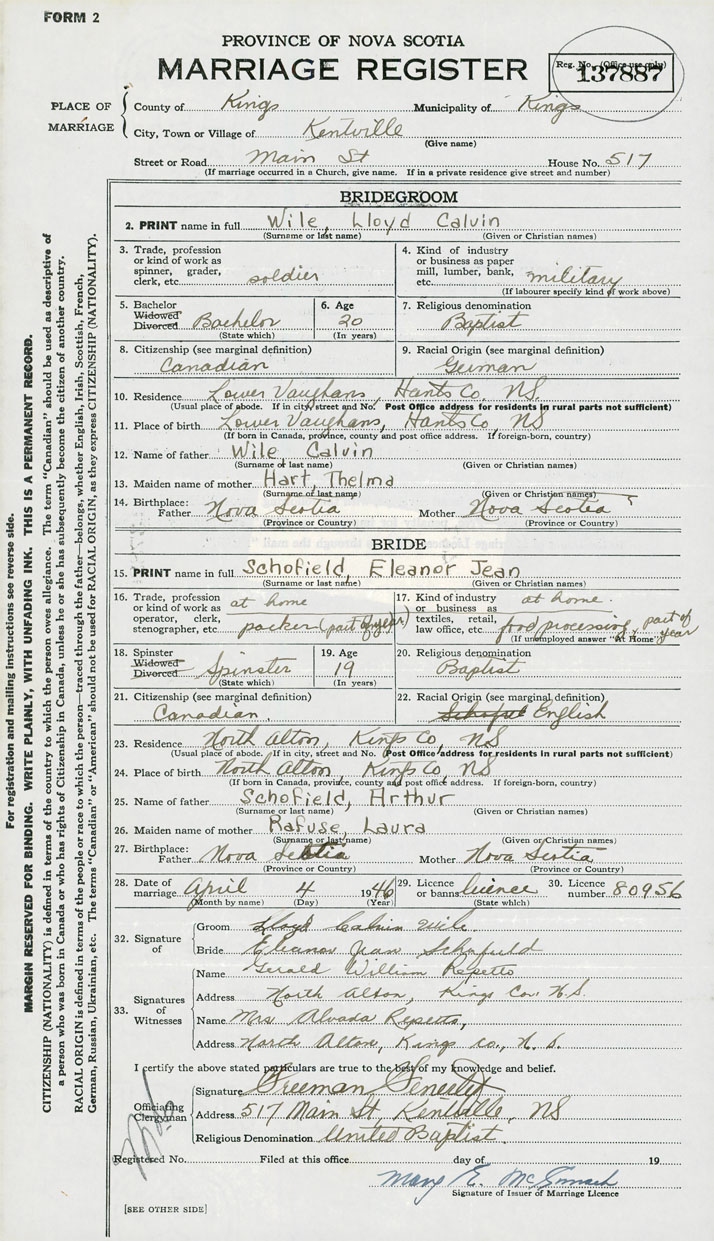 FORM 2
PROVINCE OF NOVA SCOTIA
MARRIAGE REGISTER
Reg. No. (Office use only)
137887
PLACE OF MARRIAGE
County of Kings Municipality of Kings
City, Town or Village of Kentville
(Give name)
Street or Road Main St House No. 517
(If marriage occurred in a Church, give name. If in a private residence give street and number)
BRIDEGROOM
2. PRINT name in full Wile, Lloyd Calvin
(Surname or last name) (Given or Christian names)
3. Trade, profession or kind of work as spinner, grader, clerk, etc. soldier
4. Kind of industry or business as paper mill, lumber, bank, etc. military
(If labourer specify kind of work above)
5. Bachelor Widowed Divorced Bachelor
(State which)
6. Age 20
(In years)
7. Religious denomination
Baptist
8. Citizenship (see marginal definition)
Canadian
9. Racial Origin (see marginal definition)
German
10. Residence Lower Vaughans, Hants Co, NS.
(Usual place of abode. If in city, street and No. Post Office address for residents in rural parts not sufficient)
11. Place of birth Lower Vaughans, Hants Co, NS
(If born in Canada, province, county and post office address. If foreign-born, country)
12. Name of father Wile, Calvin
(Surname or last name) (Given or Christian names)
13. Maiden name of mother Hart, Thelma
(Surname or last name) (Given or Christian names)
14. Birthplace: Father Nova Scotia Mother Nova Scotia
(Province or Country) (Province or Country)
BRIDE
15. PRINT name in full Schofield, Eleanor Jean
(Surname or last name) (Given or Christian names)
16. Trade, profession or kind of work as operator, clerk, stenographer, etc. at home packer (part of year)
17. Kind of industry or business as textiles, retail, law office, etc. at home. food processing, part of year
(If unemployed answer "At Home")
18. Spinster Widowed Divorced Spinster
(State which)
19. Age 19
(In years)
20. Religious denomination
Baptist
21. Citizenship (see marginal definition)
Canadian.
22. Racial Origin (see marginal definition)
English
23. Residence North Alton, Kings Co, NS
(Usual place of abode. If in city, street or No. (Post Office address for residents in rural parts not sufficient)
24. Place of birth North Alton, Kings Co, NS
(If born in Canada, province, county and post office address. If foreign-born, country)
25. Name of father Schofield, Arthur
(Surname or last name) (Given or Christian names)
26. Maiden name of mother Rafuse, Laura
(Surname or last name) (Given or Christian names)
27. Birthplace: Father Nova Scotia Mother Nova Scotia
(Province or Country) (Province or Country)
28. Date of marriage April 4 1946
(Month by name) (Day) (Year)
29. Licence or banns licence
(State which)
30. Licence number 80956
32. Signature of
Groom Lloyd Calvin Wile
Bride Eleanor Jean Schofield
33. Signatures of Witnesses
Name Gerald William Repetto
Address North Alton, Kings Co. N.S.
Name Mrs Alvada Repetto,
Address North Alton, Kings co., N. S.
I certify the above stated particulars are true to the best of my knowledge and belief.
Officiating Clergyman
Signature Freeman
Address 517 Main St. Kentville, NS
Religious Denomination United Baptist.
Registered No. Filed at this office day of 19
Mary E.
Signature of Issuer of Marriage Licence
[SEE OTHER SIDE]
For registration and mailing instructions see reverse side.
MARGIN RESERVED FOR BINDING. WRITE PLAINLY, WITH UNFADING INK. THIS IS A PERMANENT RECORD.
CITIZENSHIP (NATIONALITY) is defined in terms of the country to which the person owes allegiance. The term "Canadian" should be used as descriptive of
a person who was born in Canada or who has rights of Citizenship in Canada, unless he or she has subsequently become the citizen of another country.
RACIAL ORIGIN is defined in terms of the people or race to which the person—traced through the father—belongs, whether English, Irish, Scottish, French,
German, Russian, Ukrainian, etc. The terms "Canadian" or "American" should not be used for RACIAL ORIGIN, as they express CITIZENSHIP (NATIONALITY).